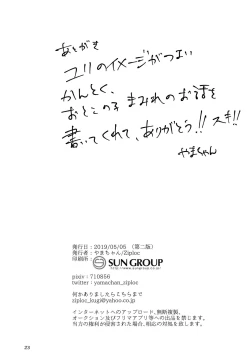 あとがき
ユリのイメージがつよい
かんとく、
おとこのこまみれのお話を
書いてくれて、ありがとう!! スキ!!
やまちゃん
発行日:2019/05/05 (第二版)
発行者:やまちゃん/Ziploc
印刷所:
SUN GROUP
http://www.sungroup.co.jp/
pixiv:710856
twitter:yamachan_ziploc
何かありましたらこちらまで
ziploc_kugi@yahoo.co.jp
インターネットへのアップロード,無断複製,
オークション及びフリマアプリ等への出品を禁じます。
当方の権利が侵害された場合,相応の対処を致します。
23